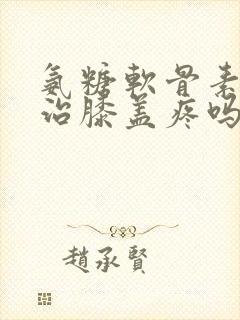 氨糖軟骨素
治膝盖疼吗
趙承賢